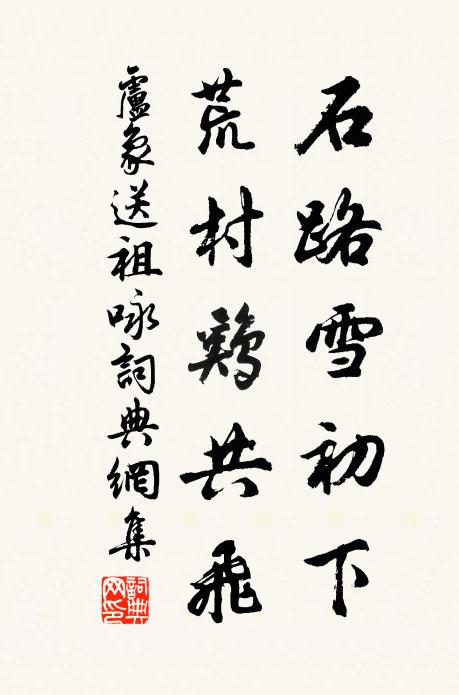 石路雪初下
荒村鷄共飛
盧象送祖咏詞典網集
詞典网印